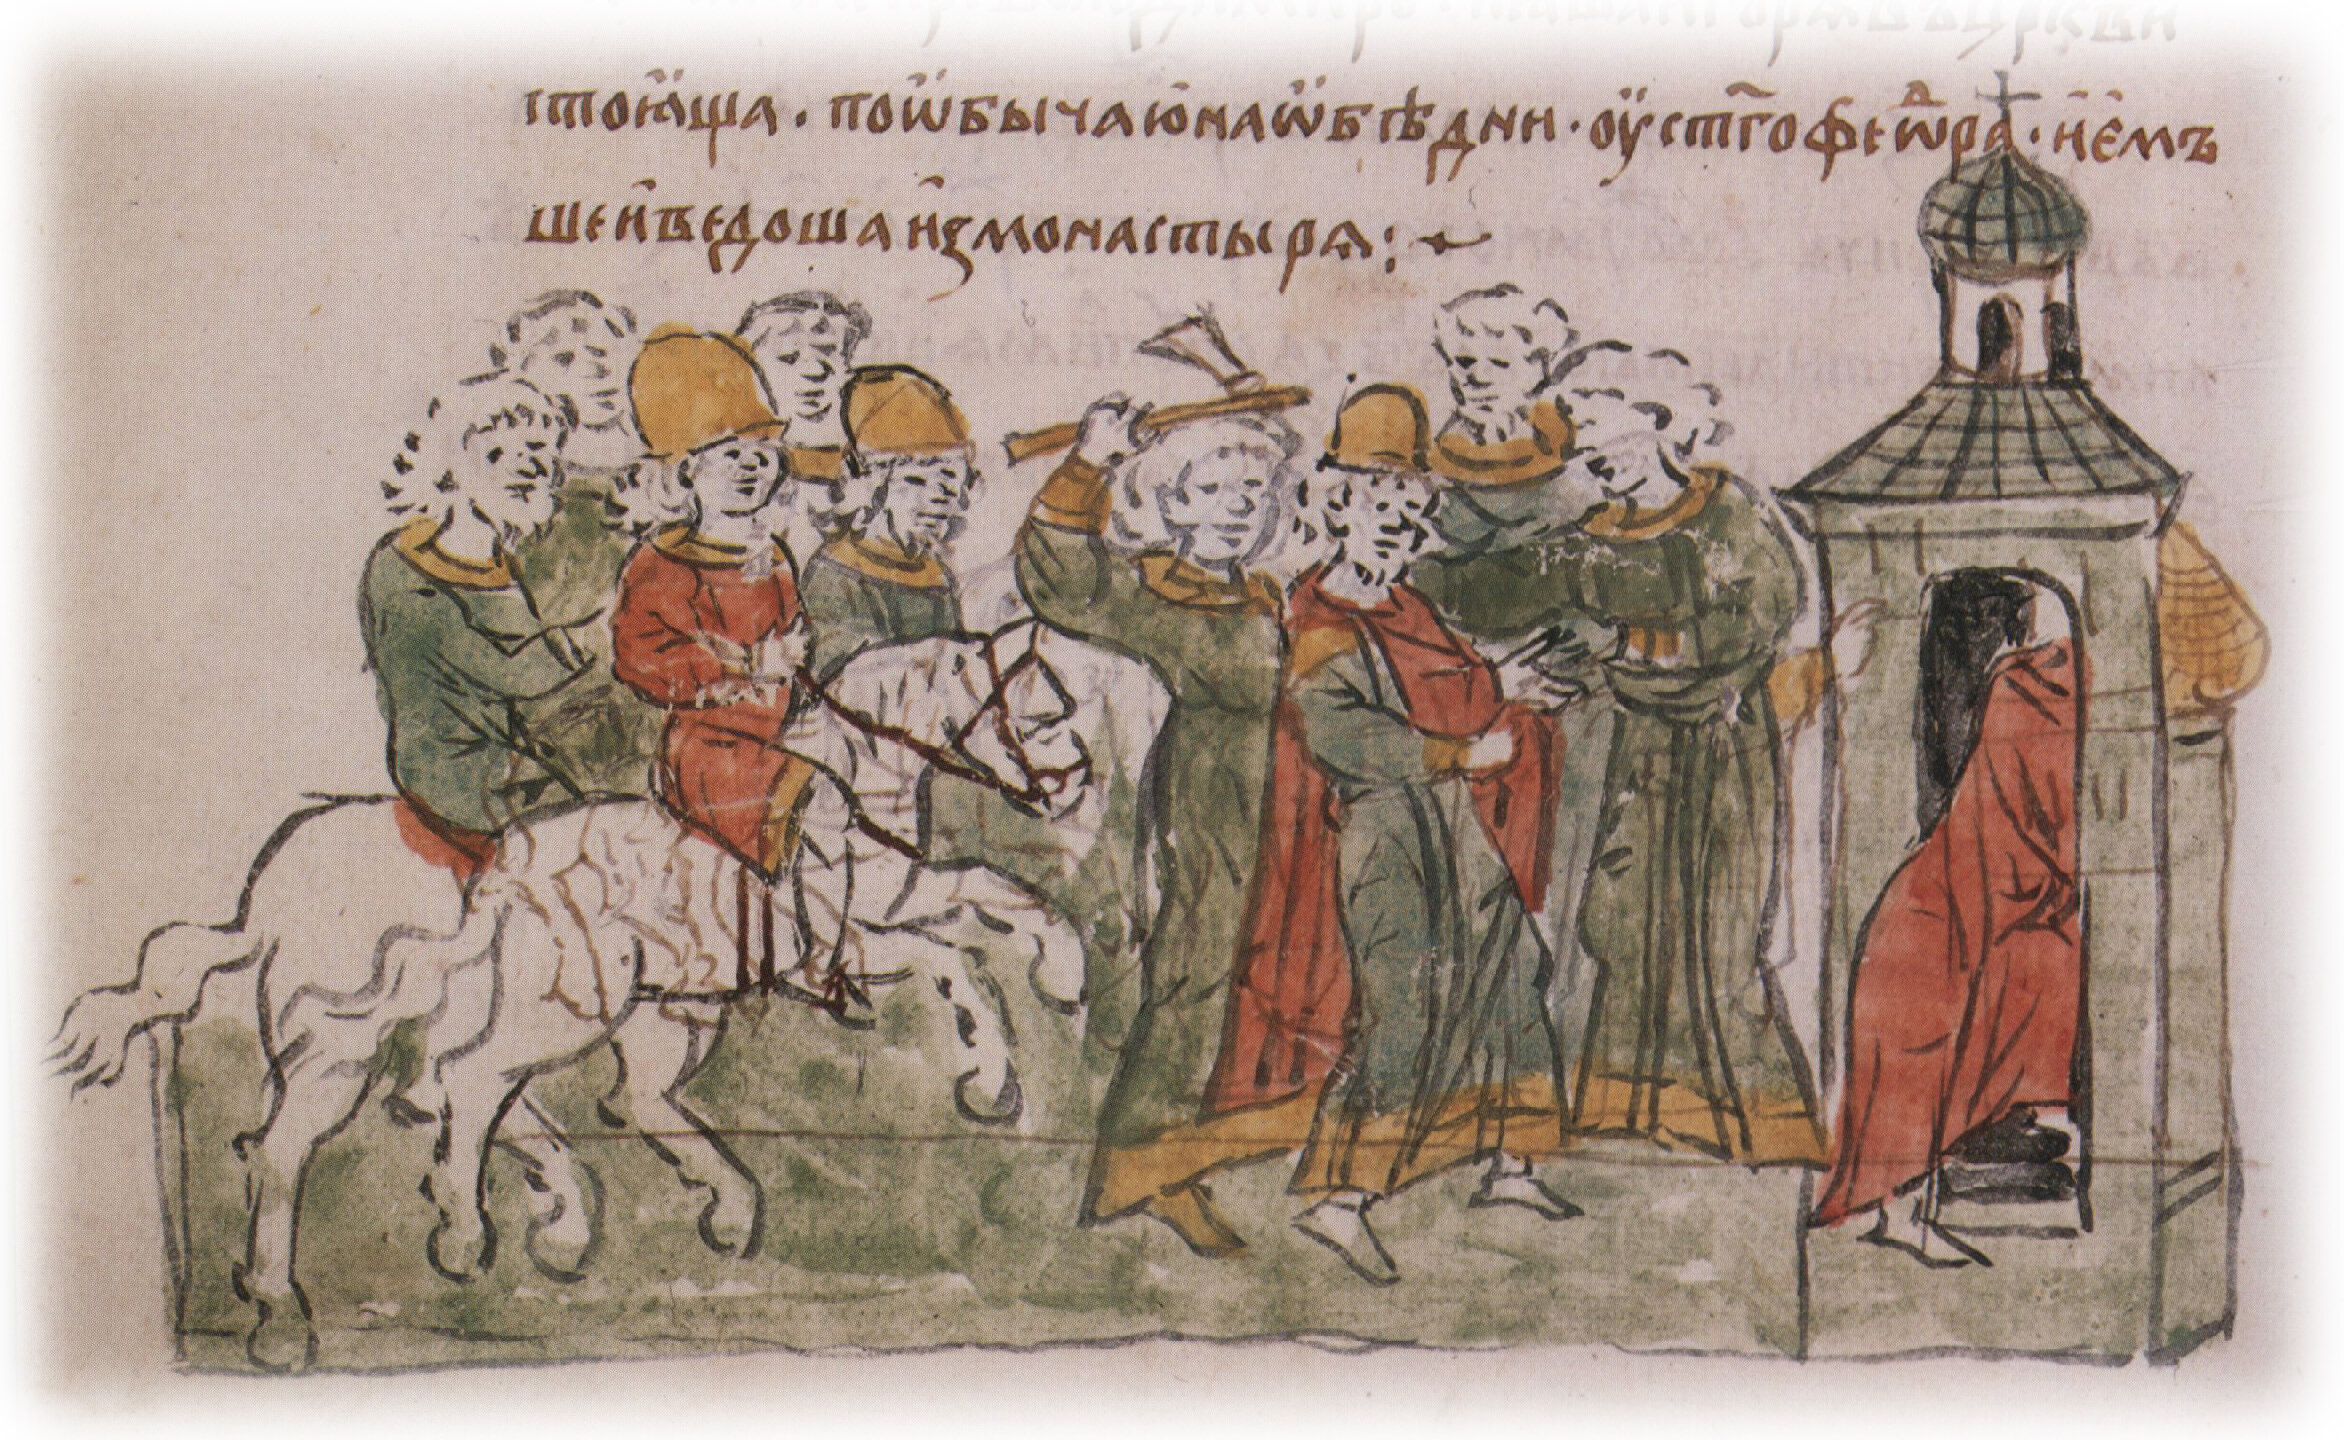 стоꙗща · по ѡ҆бычаю на ѡ҆бѣдни · оу ст҃го феѡдра · и емъ
ше и ведоша из монастырѧ :·